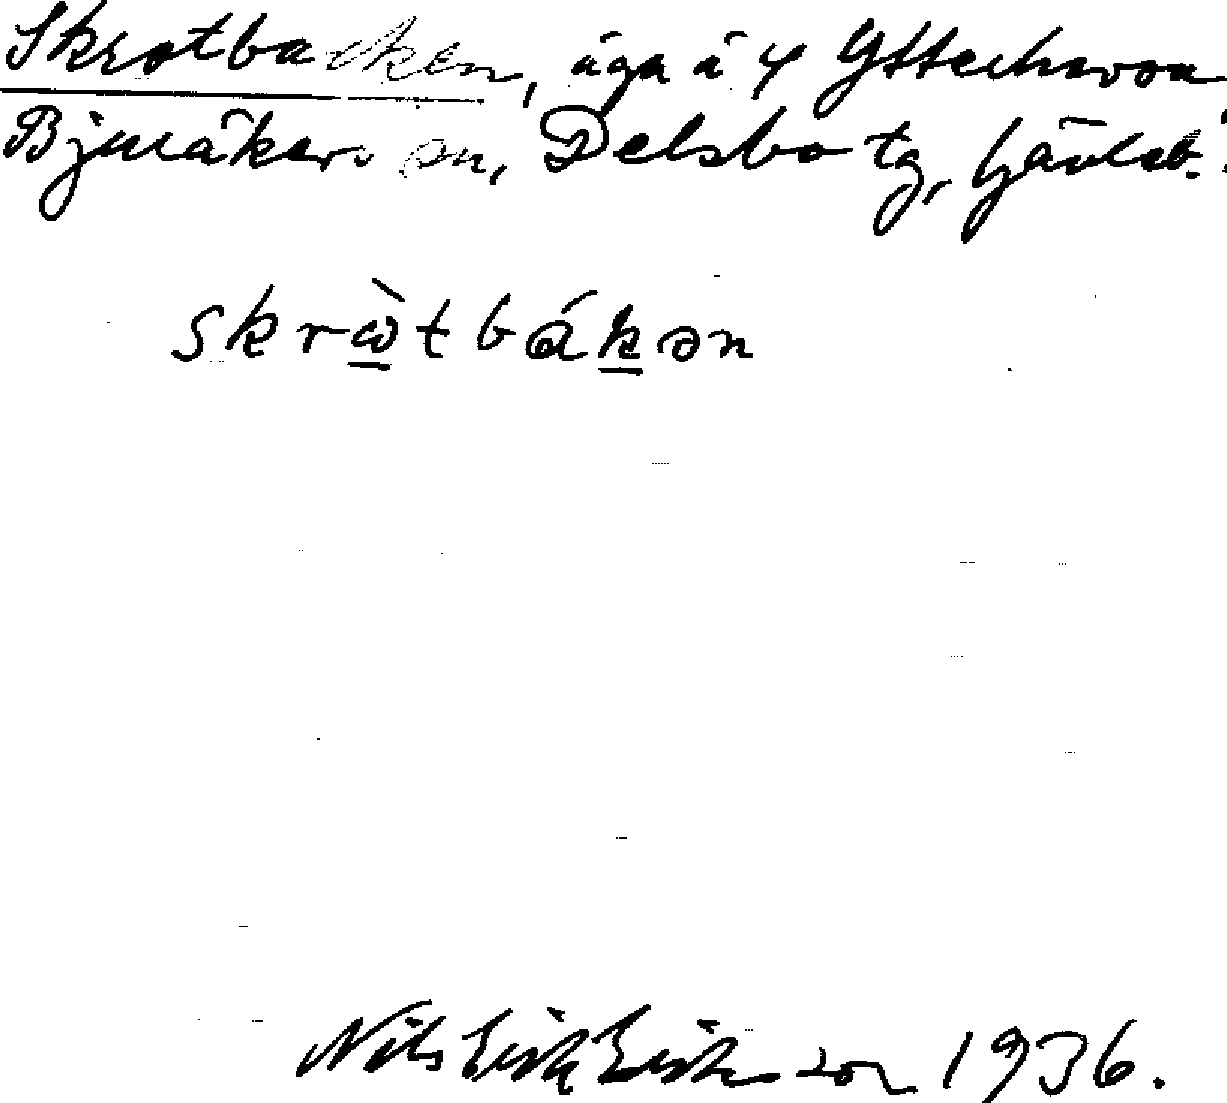 Skrotbacken, äga å 4 Ytterhavra
Bjuråkers sn, Delsbo tg, Gävleb.
skrὼtbákən
Nils Erik Eriksson 1936.